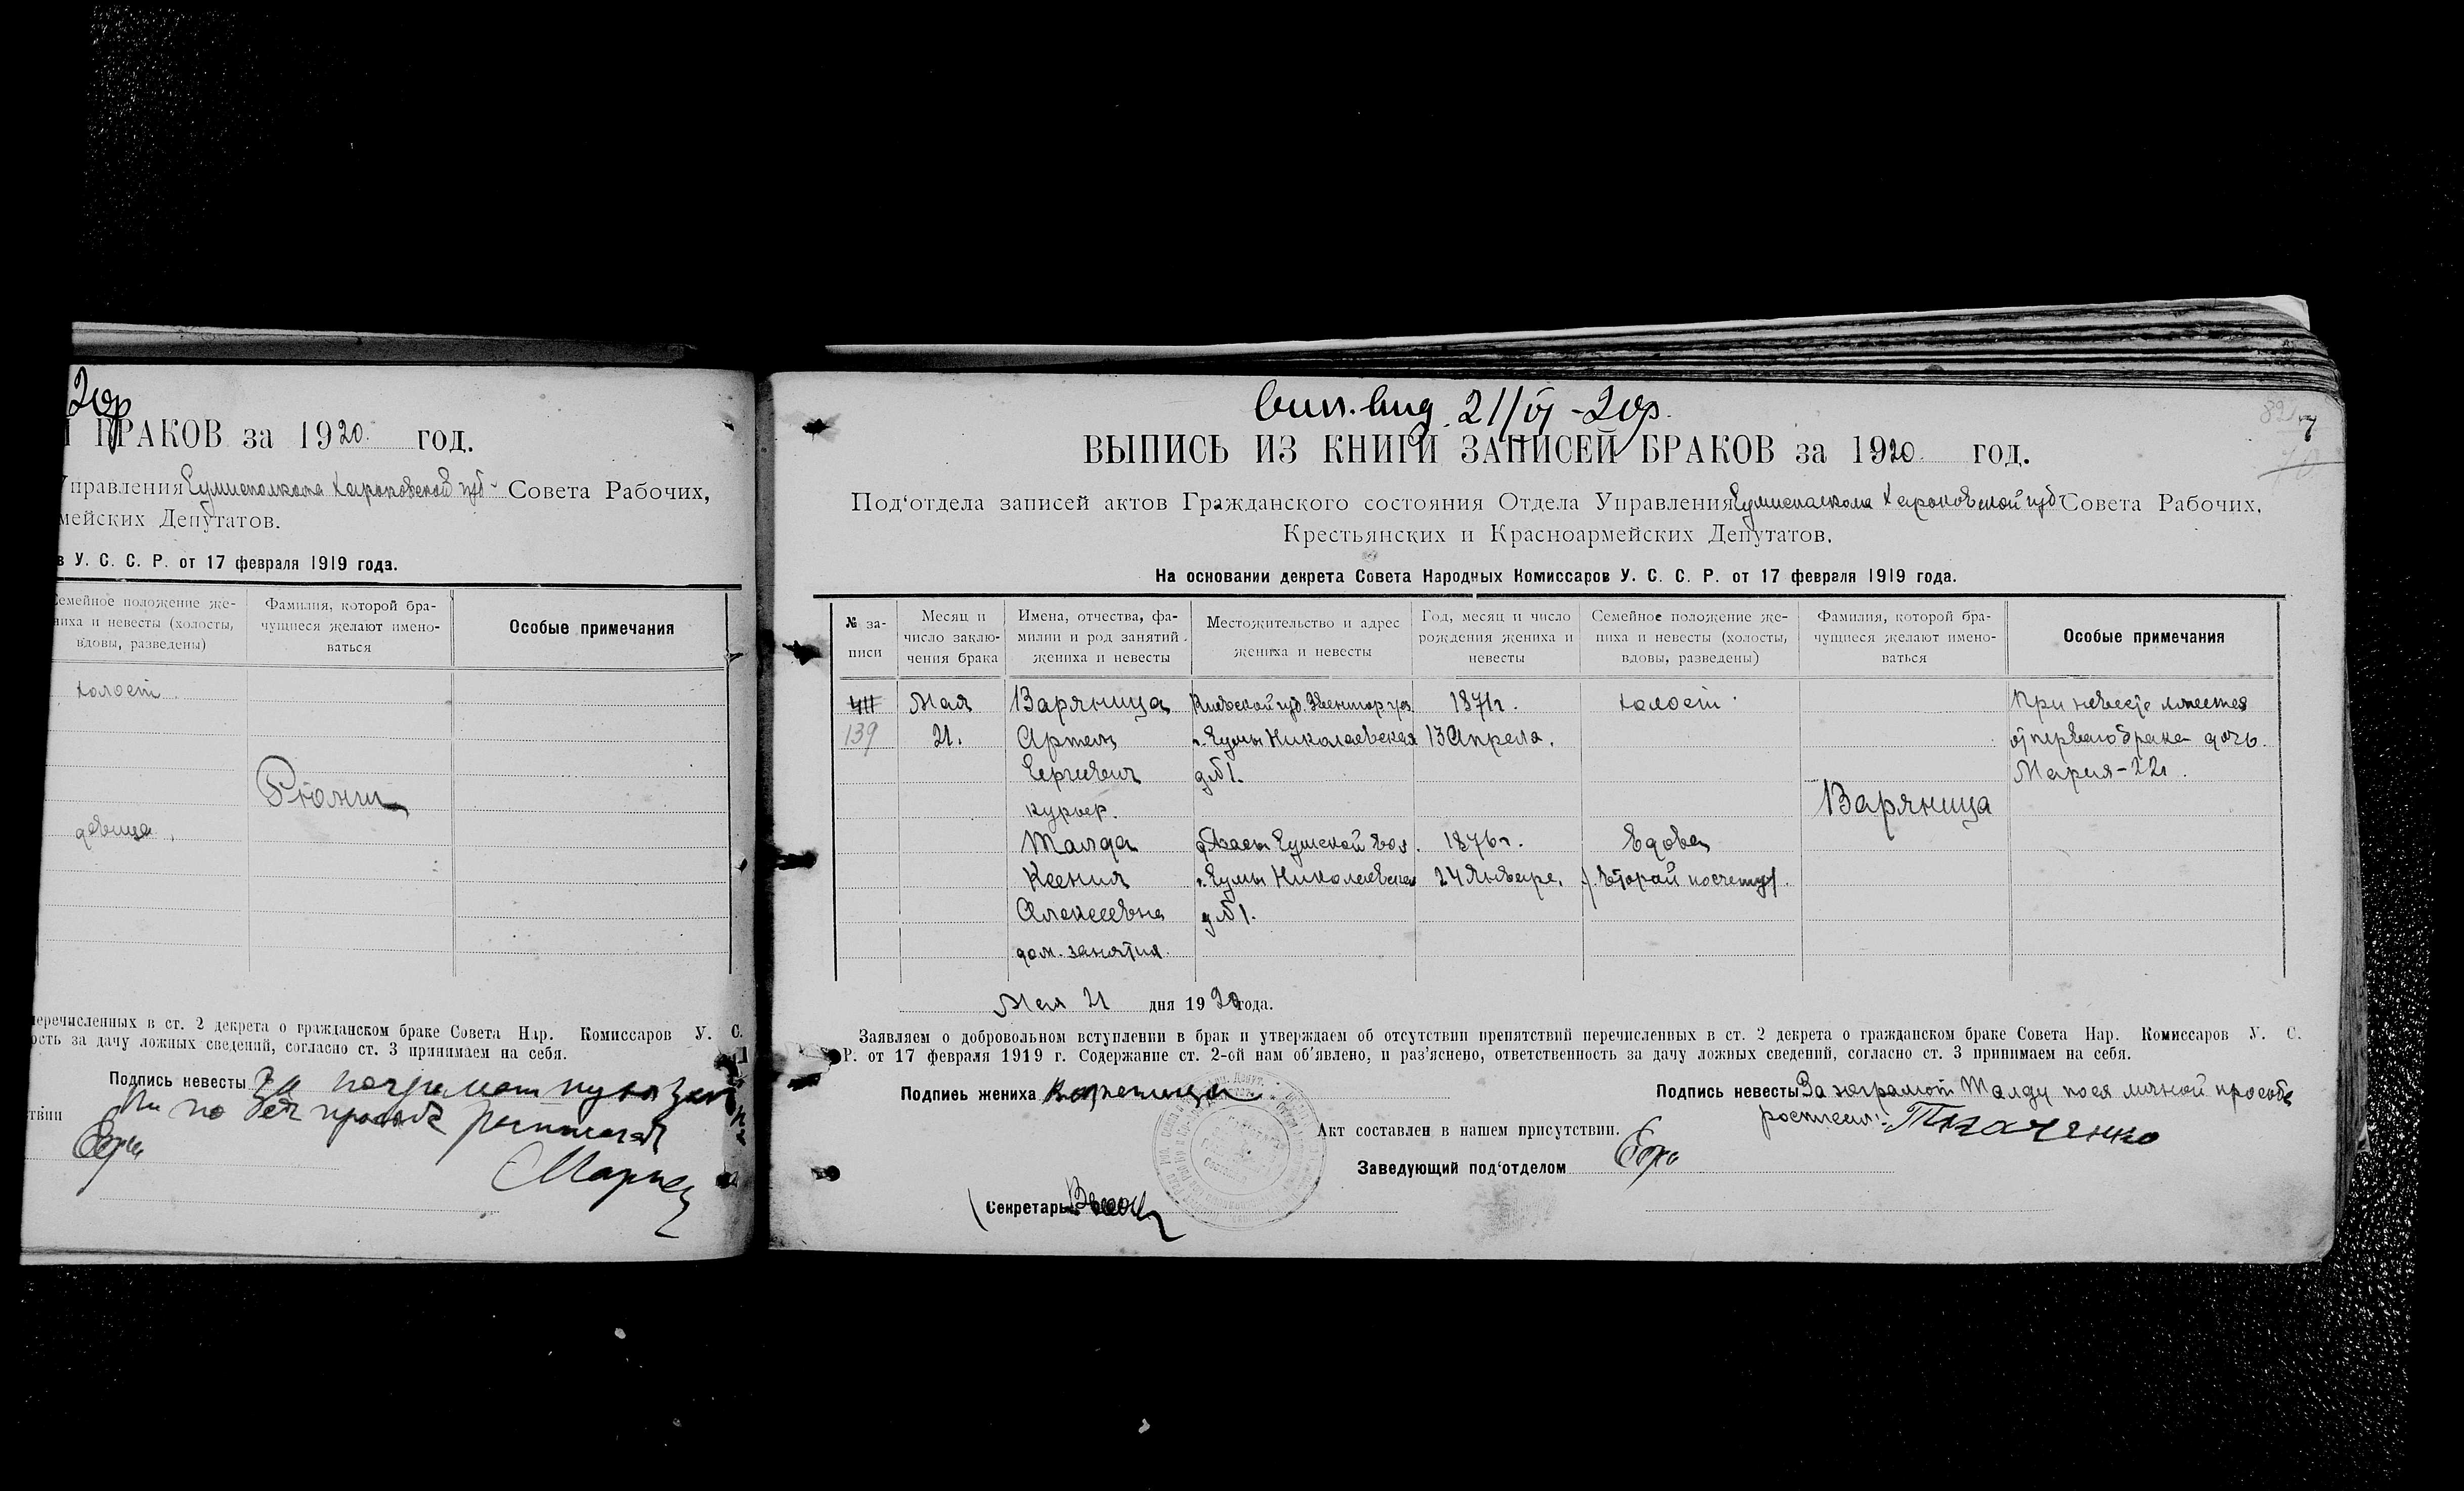 БРАКОВ за 1920 год.
Управления Сумисполкома Харьковской губ. Совета Рабочих,
мейских Депутатов.
в У. С. С. Р. от 17 февраля 1919 года.
Семейное положение же-
ниха и невесты (холосты,
вдовы, разведены)
Фамилия, которой бра-
чущиеся желают имено-
ваться
Особые примечания
холост
девица
перечисленных в ст. 2 декрета о гражданском браке Совета Нар. Комиссаров У. С.
ость за дачу ложных сведений, согласно ст. 3 принимаем на себя.
Подпись невесты За
ствии
21/VI - 20 г.
ВЫПИСЬ ИЗ КНИГИ ЗАПИСЕЙ БРАКОВ за 1920 год.
Под‘отдела записей актов Гражданского состояния Отдела Управления Сумисполкома Харьковской губ. Совета Рабочих,
Крестьянских и Красноармейских Депутатов.
На основании декрета Совета Народных Комиссаров У. С. С. Р. от 17 февраля 1919 года.
№ за-
писи
Месяц и
число заклю-
чения брака
Имена, отчества, фа-
милии и род занятий
жениха и невесты
Местожительство и адрес
жениха и невесты
Год, месяц и число
рождения жениха и
невесты
Семейное положение же-
ниха и невесты (холосты,
вдовы, разведены)
Фамилия, которой бра-
чущиеся желают имено-
ваться
Особые примечания
139
Мая
21.
Варяница
Артем
Сергиевич
курьер.
Киевской губ. Звенигор. уез.
г. Сумы Николаевская
д № 1.
1871 г.
13 Апреля.
холост
При невесте имеется
от первого брака дочь
Мария - 22 г.
Варяница
Малда
Ксения
Алексеевна
дом. занятия.
Сумской вол.
г. Сумы Николаевская
д № 1.
1876 г.
24 Января.
Вдова
Мая 21 дня 1920 года.
Заявляем о добровольном вступлении в брак и утверждаем об отсутствии препятствий перечисленных в ст. 2 декрета о гражданском браке Совета Нар. Комиссаров У. С.
Р. от 17 февраля 1919 г. Содержание ст. 2-ой нам об‘явлено, и раз‘яснено, ответственность за дачу ложных сведений, согласно ст. 3 принимаем на себя.
Подпись жениха Варяница
Подпись невесты За неграмот Малду по ея личной просьбе
росписал: Ткаченко
Акт составлен в нашем присутствии.
Заведующий под‘отделом
Секретарь